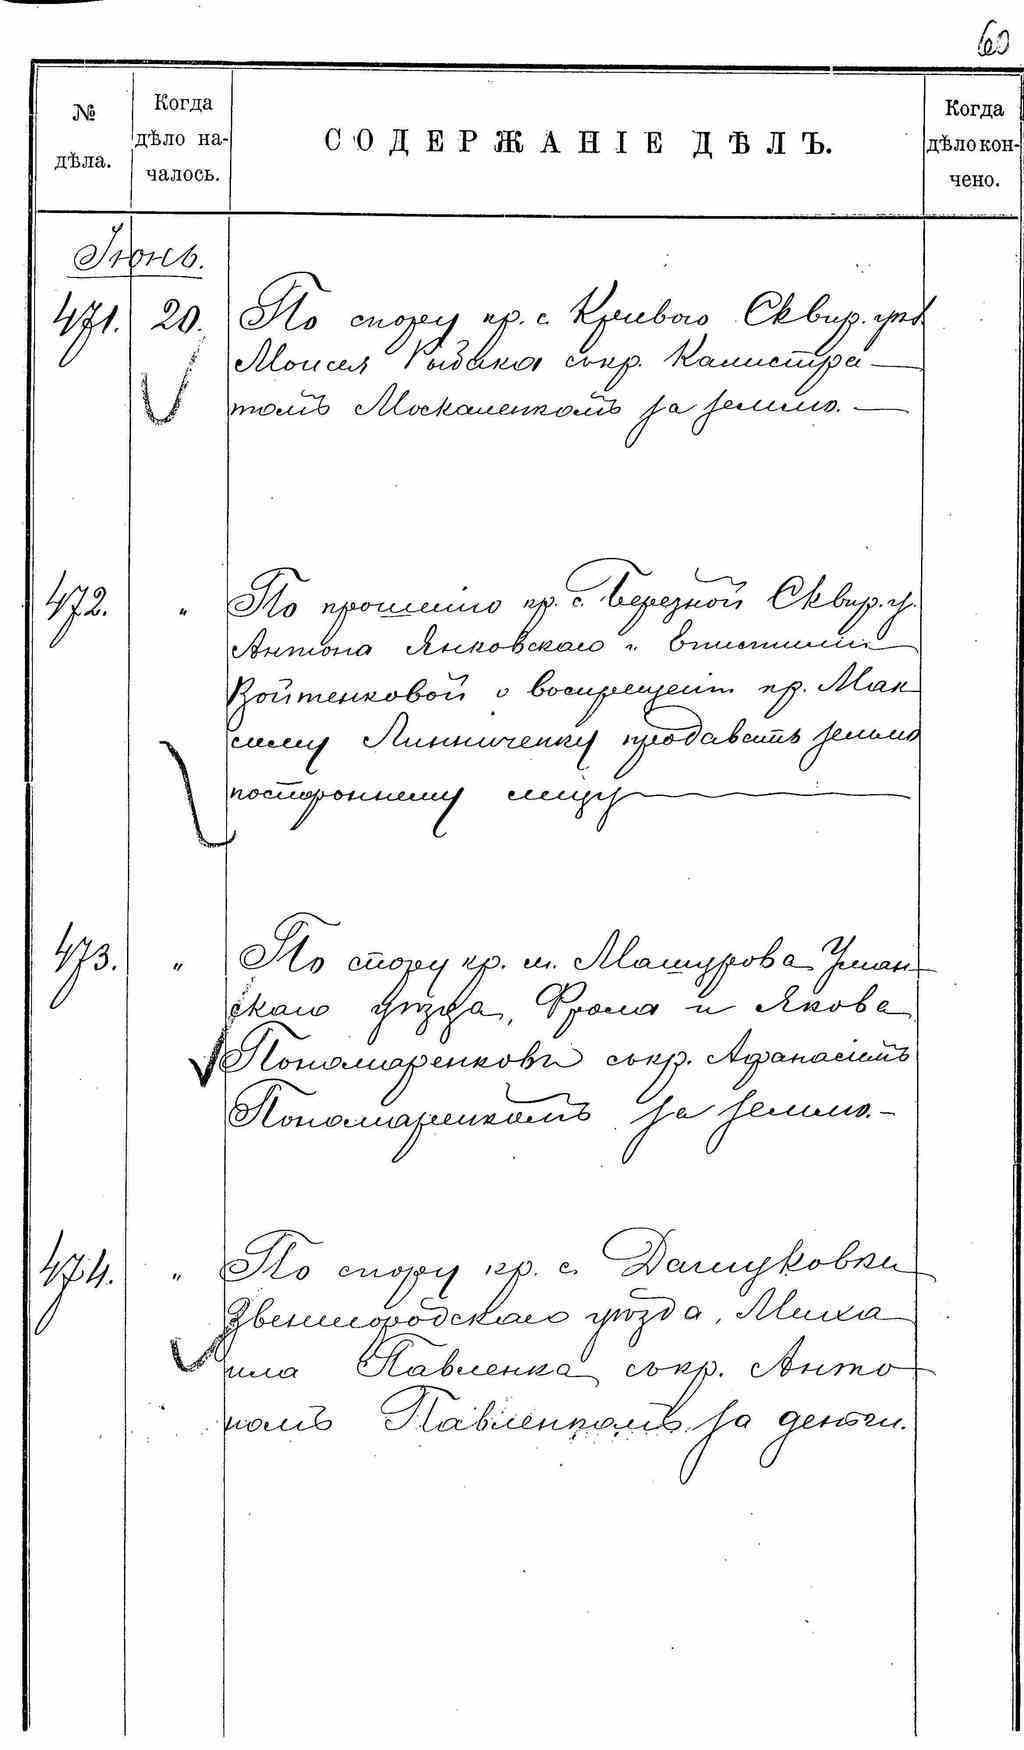 60
№ дѣла.
Когда дѣло началось.
СОДЕРЖАНІЕ ДѢЛЪ.
Когда дѣло кончено.
Іюнь.
471. 20. По спору кр. с. Кривого Сквир. уѣз.
Моисея Рыбака съ кр. Калистра-
томъ Москаленкомъ за землю. —
472. " По прошенію кр. с. Березной Сквир. у.
Антона Янковскаго и
Войтенковой о воспрещеніи кр. Мак
симу Линниченку продавать землю
постороннему лицу —
473. " По спору кр. м. Машурова Уман-
скаго уѣзда, Фрола и Якова
Пономаренковъ съ кр. Афанасіемъ
Пономаренкомъ за землю. —
474. " По спору кр. с. Дашуковки
Звенигородскаго уѣзда, Миха
ила Павленка съ кр. Анто
номъ Павленкомъ за деньги.